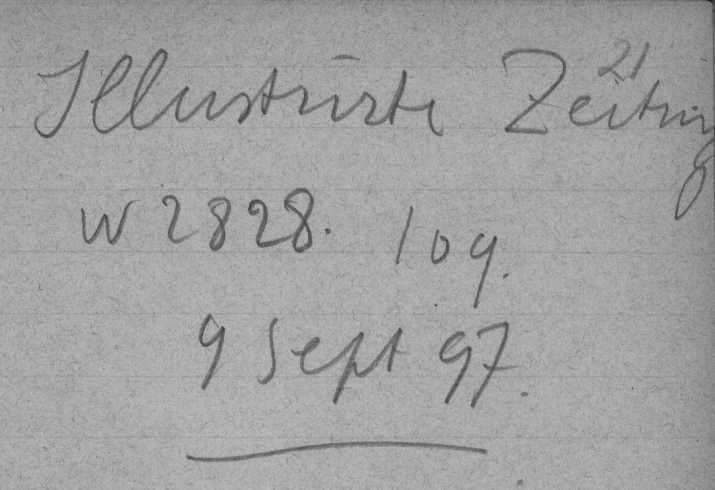 21
Illustrirte Zeitung
N 2828. 109.
9 Sept 97.